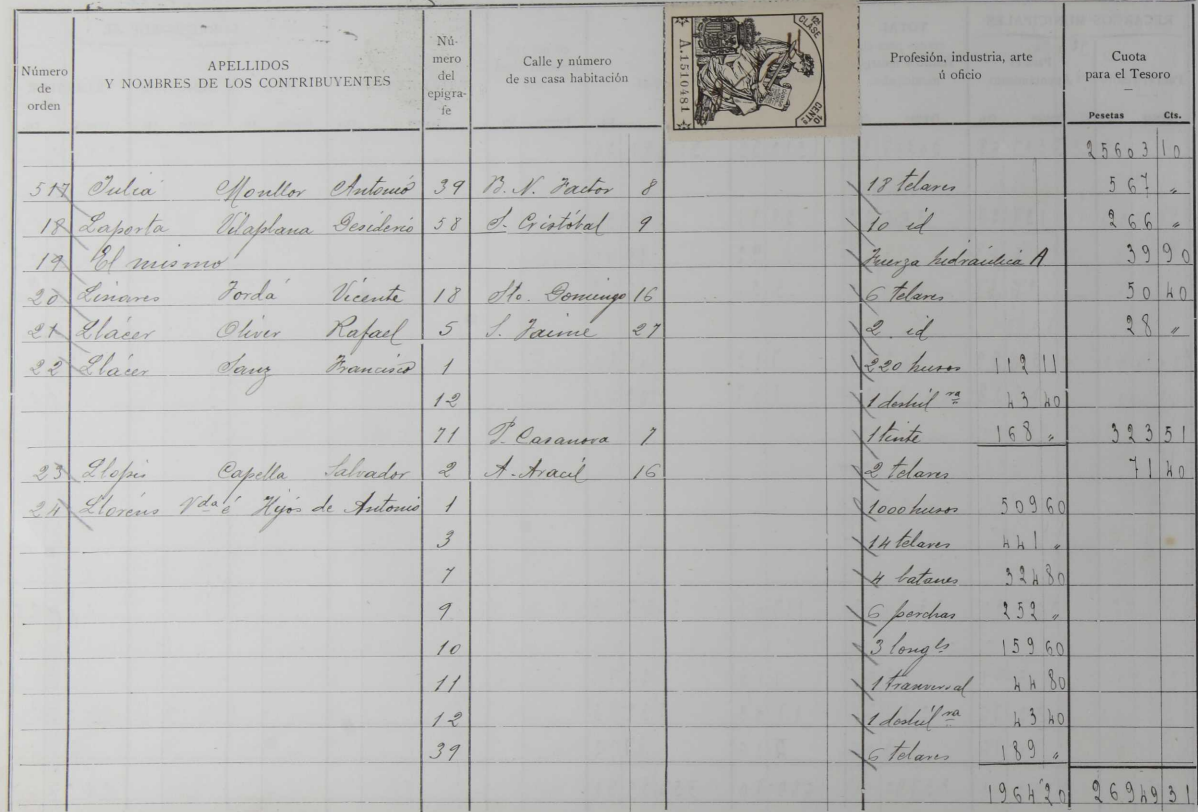 Número de orden
APELLIDOS Y NOMBRES DE LOS CONTRIBUYENTES
Número del epigrafe
Calle y número de su casa habitación
12ª CLASE
A.1510481
10 CENTS
Profesión, industria, arte ú oficio
Cuota para el Tesoro
Pesetas Cts.
25603 10
517 Juliá Monllor Antonio 39 B. N. Factor 8 18 telares 567 "
18 Laporta Vilaplana Desiderio 58 S. Cristóbal 9 10 id 266 "
19 El mismo Fuerza hidráulica A 39 90
20 Linares Jordá Vicente 18 Sto. Domingo 16 6 telares 50 40
21 Llácer Oliver Rafael 5 S. Jaime 27 2 id 28 "
22 Llácer Sanz Francisco 1 220 husos 112 11
12 1 deshilra 43 40
71 P. Casanova 7 1 tinte 168 " 323 51
23 Llopis Capella Salvador 2 A. Aracil 16 2 telares 71 40
24 Lloréns Vda é Hijos de Antonio 1 1000 husos 509 60
3 14 telares 441 "
7 4 batanes 324 80
9 6 perchas 252 "
10 3 longls 159 60
11 1 tranversal 44 80
12 1 deshilra 43 40
39 6 telares 189 "
1964'20 26949 31